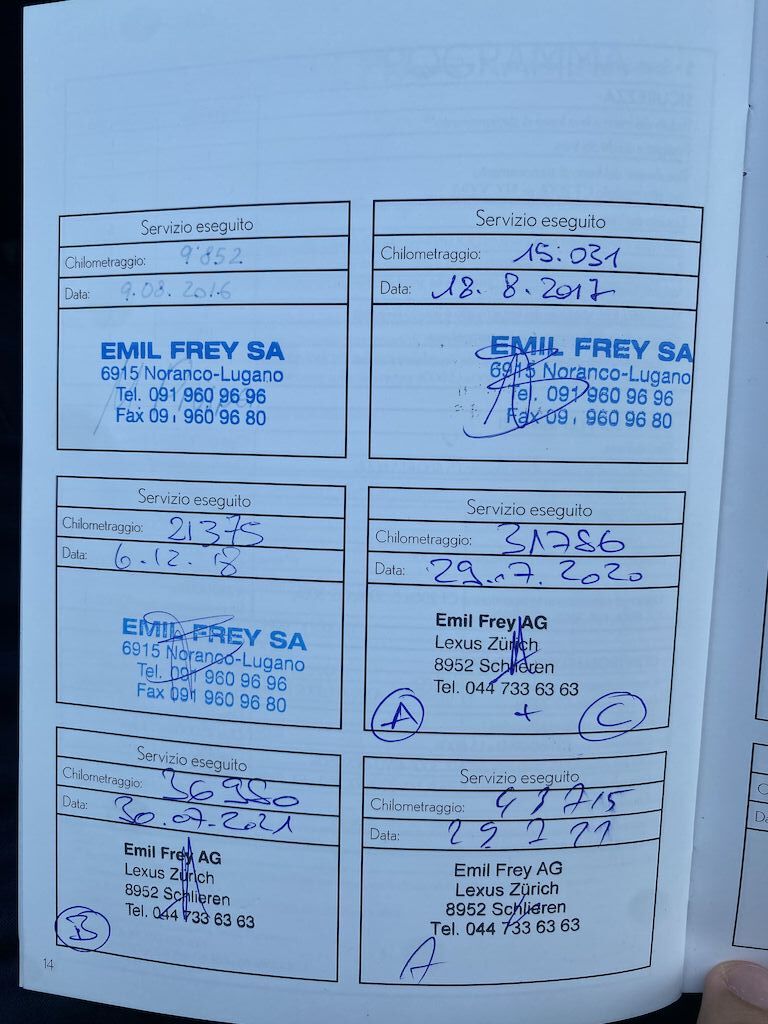 Servizio eseguito
Chilometraggio: 9'852
Data: 9.08.2016
EMIL FREY SA
6915 Noranco-Lugano
Tel. 091 960 96 96
Fax 091 960 96 80
Servizio eseguito
Chilometraggio: 15:031
Data: 18.8.2017
EMIL FREY SA
6915 Noranco-Lugano
Tel. 091 960 96 96
Fax 091 960 96 80
Servizio eseguito
Chilometraggio: 21375
Data: 6.12.18
EMIL FREY SA
6915 Noranco-Lugano
Tel. 091 960 96 96
Fax 091 960 96 80
Servizio eseguito
Chilometraggio: 31786
Data: 29.7.2020
Emil Frey AG
Lexus Zürich
8952 Schlieren
Tel. 044 733 63 63
A + C
Servizio eseguito
Chilometraggio: 36980
Data: 30.07.2021
Emil Frey AG
Lexus Zürich
8952 Schlieren
Tel. 044 733 63 63
B
Servizio eseguito
Chilometraggio:
Data:
Emil Frey AG
Lexus Zürich
8952 Schlieren
Tel. 044 733 63 63
A
14